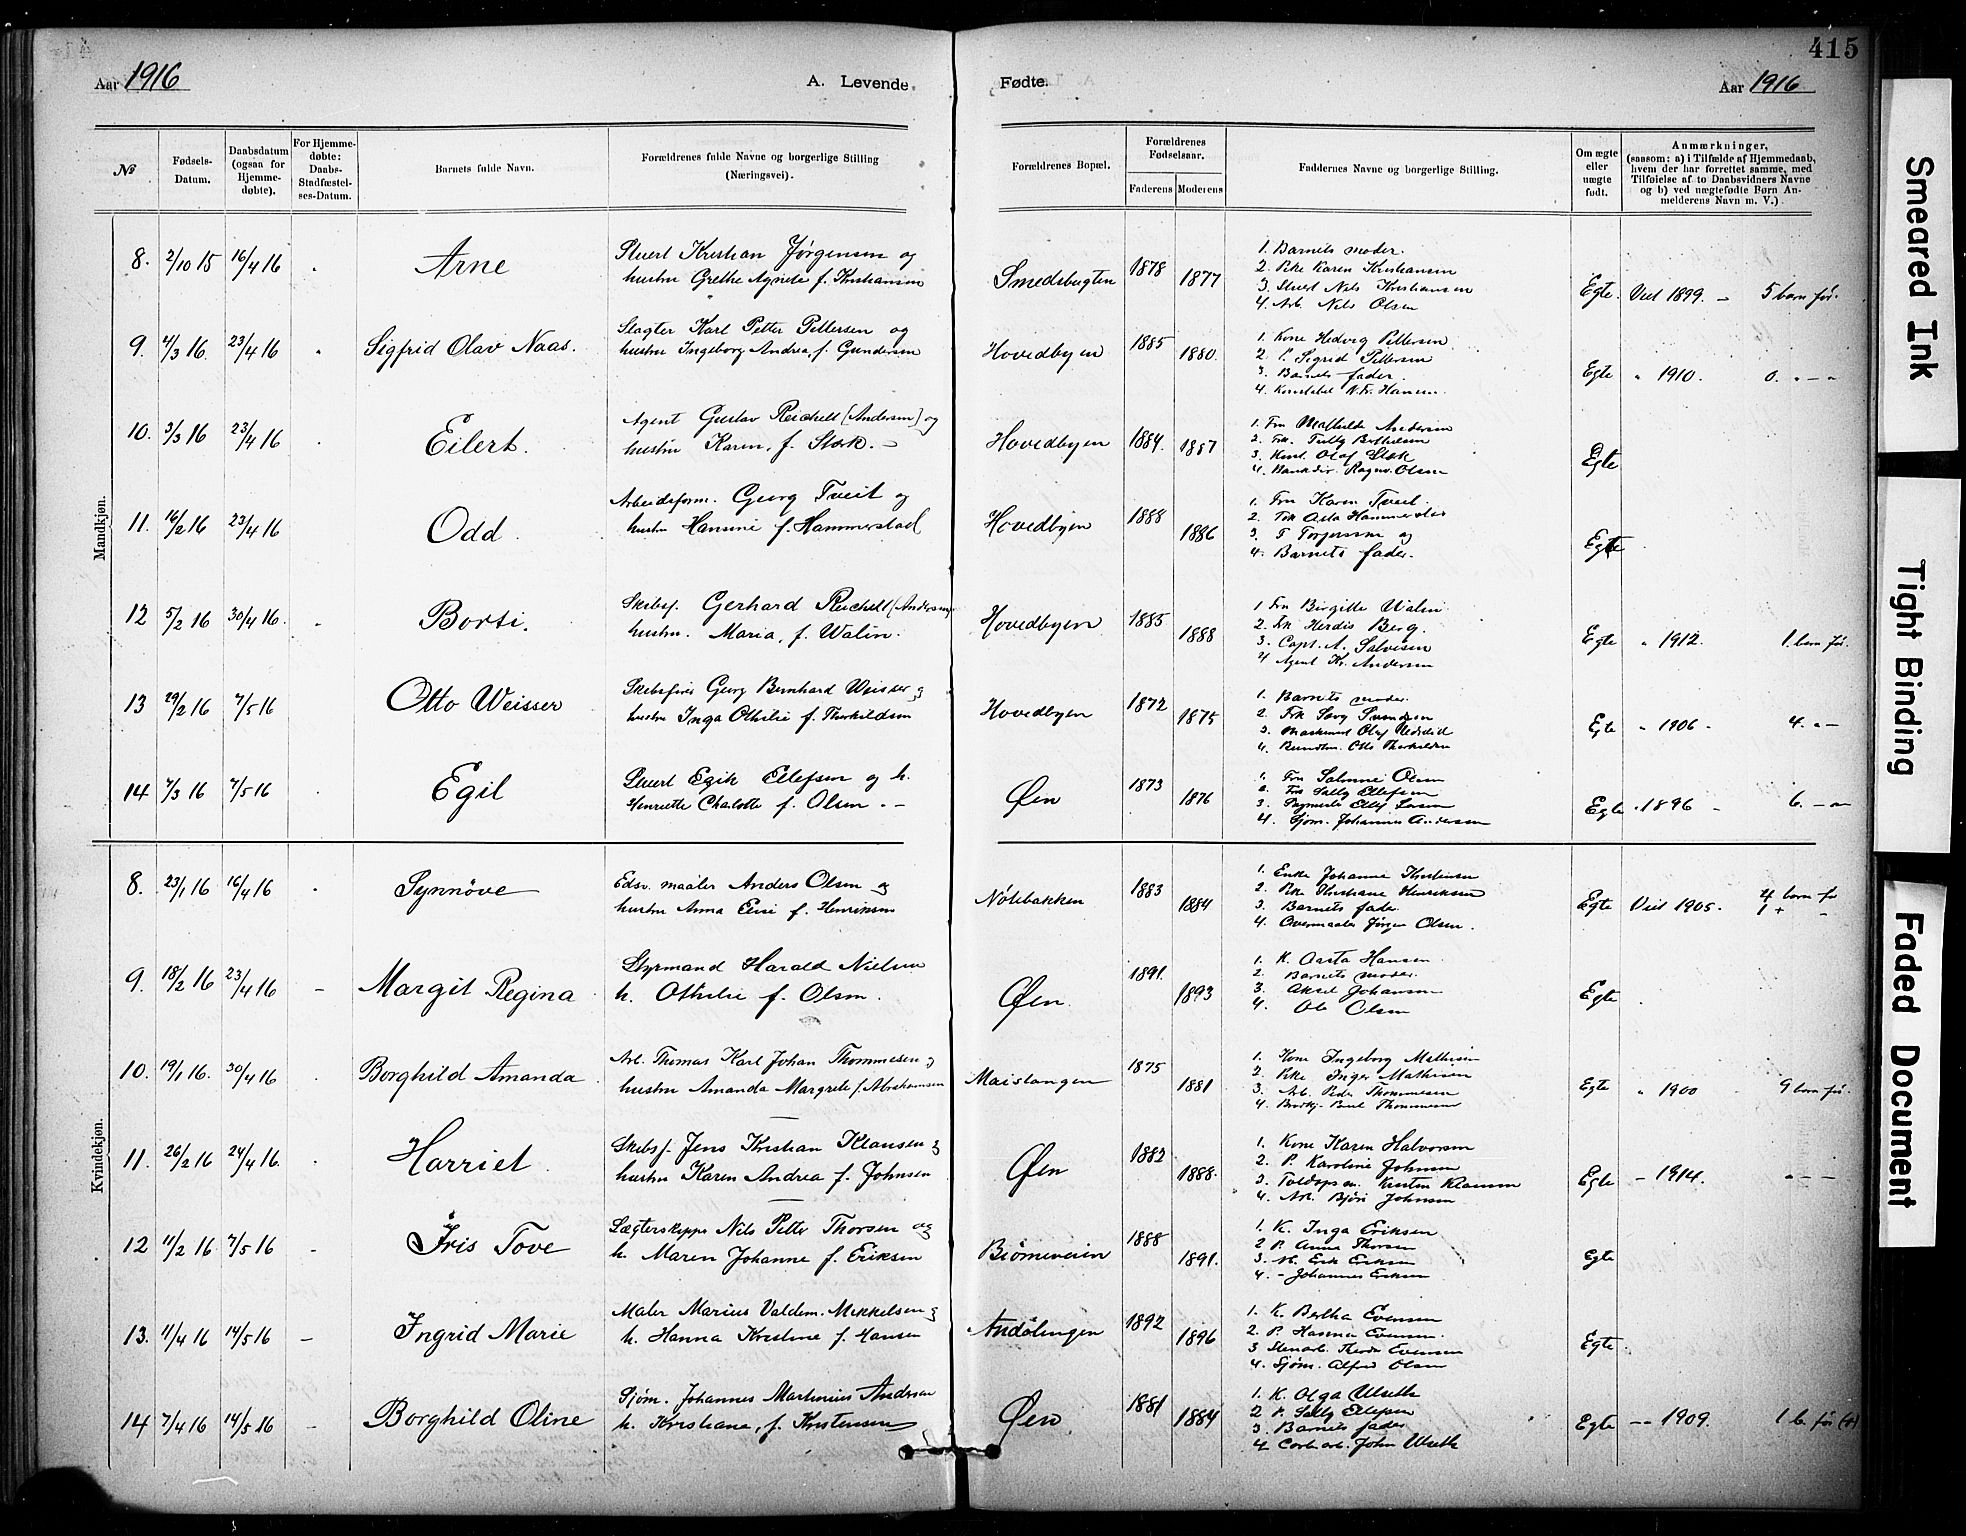 415
Aar 1916 A. Levende Fødte. Aar 1916
№ Fødsels-Datum. Daabsdatum (ogsaa for Hjemme-døbte). For Hjemme-døbte: Daabs-Stadfæstel-ses-Datum. Barnets fulde Navn. Forældrenes fulde Navne og borgerlige Stilling (Næringsvei). Forældrenes Bopæl. Forældrenes Fødselsaar. Faderens Moderens Faddernes Navne og borgerlige Stilling. Om ægte eller uægte født. Anmærkninger, (saasom: a) i Tilfælde af Hjemmedaab, hvem der har forrettet samme, med Tilføielse af to Daabsvidners Navne og b) ved uægtefødte Børn Anmelderens Navn m. V.)
Mandkjøn.
8. 2/10 15 16/4 16 Arne Stuert Kristian Jørgensen og Smedsbugten 1878 1877 1. Barnets moder.
hustru Grethe Agnete f. Kristiansen 2. Pike Karen Kristiansen
3. Stuert Nils Kristiansen Egte. Viet 1899. - 5 barn før.
4. Arb. Nils Olsen
9. 4/3 16. 23/4 16 Sigfrid Olav Naas. Slagter Karl Petter Pettersen og Hovedbyen 1885 1880. 1. Kone Hedvig Pettersen
hustru Ingeborg Andrea f. Gundersen 2. P. Sigrid Pettersen
3. Barnets fader. Egte " 1910. 0. " - "
4. Konstabel N. Fr. Hansen
10. 3/3 16 23/4 16 Eilert. Agent Gustav Reichelt (Andersen) og Hovedbyen 1884. 1887 1. Fru Mathilde Andersen
hustru Karen, f. Stok. - 2. Frk.
3. Olaf Stok Egte
4. Ragnv. Olsen
11. 16/2 16 23/4 16 Odd. Arbeidsform. Georg Tveit og Hovedbyen 1888 1886 1. Fru Karen Tveit.
hustru Hansine f. Hammerstad 2. Frk Asta Hammerstad
3. T Torjussen og Egte
4. Barnets fader.
12 5/2 16 30/4 16. Borti. Skibsf. Gerhard Reichelt (Andersen) Hovedbyen 1885 1888 1 Fru Birgitte Walin
hustru. Maria, f. Walin. 2. Frk Herdis Berg.
3. Capt. A. Salvesen Egte " 1912. 1 barn før.
4 Agent Kr. Andersen
13 29/2 16 7/5 16 Otto Weisser Skibsfører Georg Bernhard Weisser og Hovedbyen 1872 1875 1. Barnets moder.
hustru Inga Othilie f. Thorkildsen 2. Frk Svendsen
3. Maskinist Olaf Egte " 1906 - 4. " -
4. Otto Thorkildsen
14 7/3 16 7/5 16 Egil Stuert Egik Ellefsen og h. Øen 1873 1876 1. Fru Salmine Olsen
Henriette Charlotte f. Olsen. - 2. Frk Sally Ellefsen
3. Egte " 1896 - 6. - "
4. Sjøm. Johannes Andersen
Kvindekjøn.
8. 23/1 16 16/4 16 Synnöve Edsv. maaler Anders Olsen og Nölebakken 1883 1884 1. Enke Johanne Kristensen
hustru Anna Elise f. Henriksen 2. Pike Kristiane Henriksen
3. Barnets fader. Egte Viet 1905. 4 barn før 1 +
4. Jörgen Olsen.
9. 18/2 16 23/4 16 Margit Regina Styrmand Harald Nielsen Øen. 1891. 1893 1. K. Aasta Hansen
h. Othilie f. Olsen. 2. Barnets moder.
3. Aksel Johansen Egte
4. Ole Olsen
10. 19/1 16. 30/4 16 Borghild Amanda Arb. Thomas Karl Johan Thommesen og Maistangen 1875 1881 1. Kone Ingeborg Mathisen
hustru Amanda Margrete f. Abrahamsen 2. Pike Inger Mathisen
3. Arb. Peder Thommesen Egte " 1900 9 barn før.
4. Thommesen
11. 26/2 16 24/4 16. Harriet. Skibsf. Jens Kristian Klausen og Øen 1882 1888. 1. Kone Karen Halvorsen
hustru Karen Andrea f. Johnsen 2. P. Karoline Johnsen
3. Kristen Klausen Egte - 1914. " - -
4. Arb. Bjørn Johnsen
12 11/2 16 7/5 16 Iris Tove Lægterskippr Nils Petter Thorsen og 1888 1891. 1. K. Inga Eriksen
h. Maren Johanne f. Eriksen 2 P. Anna Thorsen
3. M. Erik Eriksen Egte
4. - Johannes Eriksen
13. 11/4 16 14/5 16 Ingrid Marie Maler Marius Valdem. Mikkelsen og 1892 1896 1. K. Bertha Evensen
h. Hanna Kristine f. Hansen 2. P. Hanna Evensen.
3 Stenarb. Evensen Egte
4. Sjøm. Alfred Olsen
14 7/4 16 14/5 16 Borghild Oline Sjøm. Johannes Martinius Andersen Øen 1881 1884 1. K. Olga Ulseth
h. Kristiana, f. Kristensen 2 P. Sally Ellefsen
3. Barnets fader Egte -- 1909. 1 b. før (+)
4 John Ulseth
Smeared Ink
Tight Binding
Faded Document